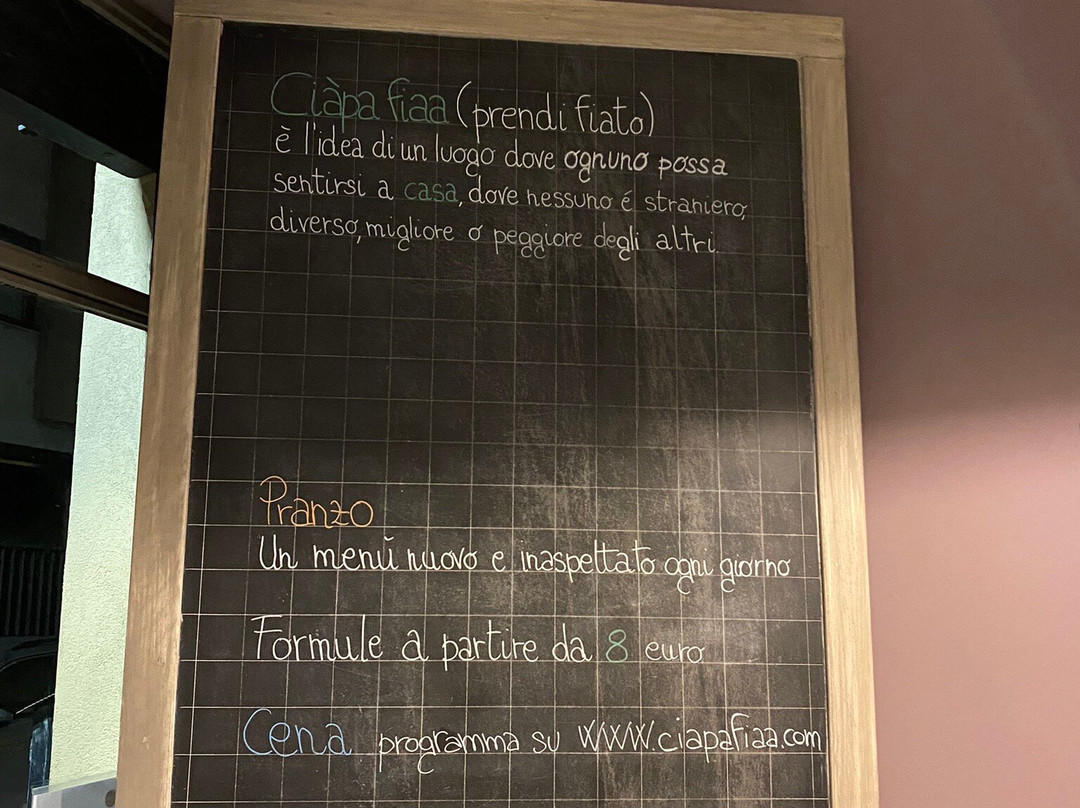 Ciàpa fiaa (prendi fiato)
è l'idea di un luogo dove ognuno possa
sentirsi a casa, dove nessuno é straniero,
diverso, migliore o peggiore degli altri.
Pranzo
Un menú nuovo e inaspettato ogni giorno
Formule a partire da 8 euro
Cena programma su WWW.ciapafiaa.com